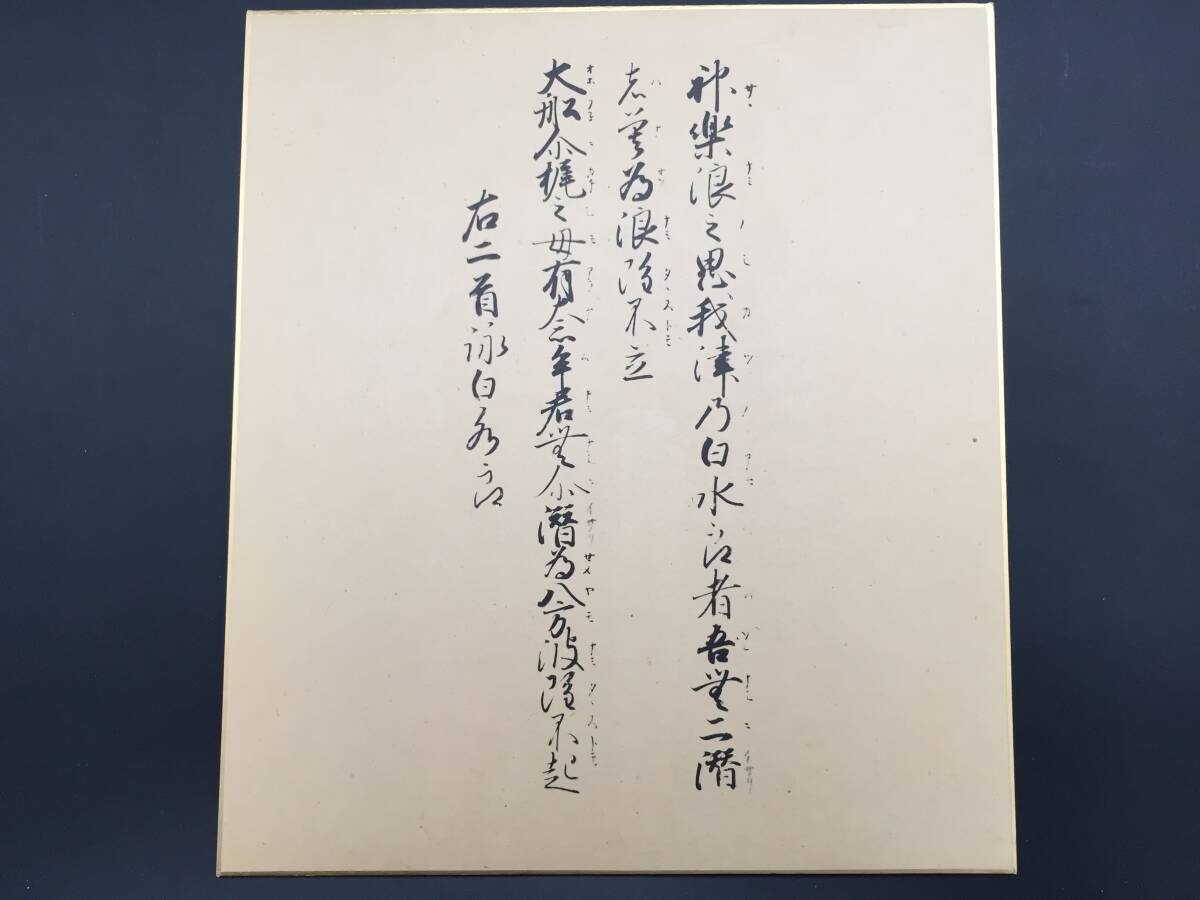 神樂浪之思我津乃白水郎者吾無二潜
者莫為浪雖不立
大船尒梶之母有奈牟君無尒潜為八方波雖不起
右二首詠白水郎